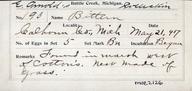 E. Arnold's Battle Creek, Michigan. Collection
No 93 Bittern
Calhoun Co, Mich May 21, '97
No. of Eggs in Set Incubation Begun
Remarks Found in marsh west
of Cotton's. Nest made of
grass.